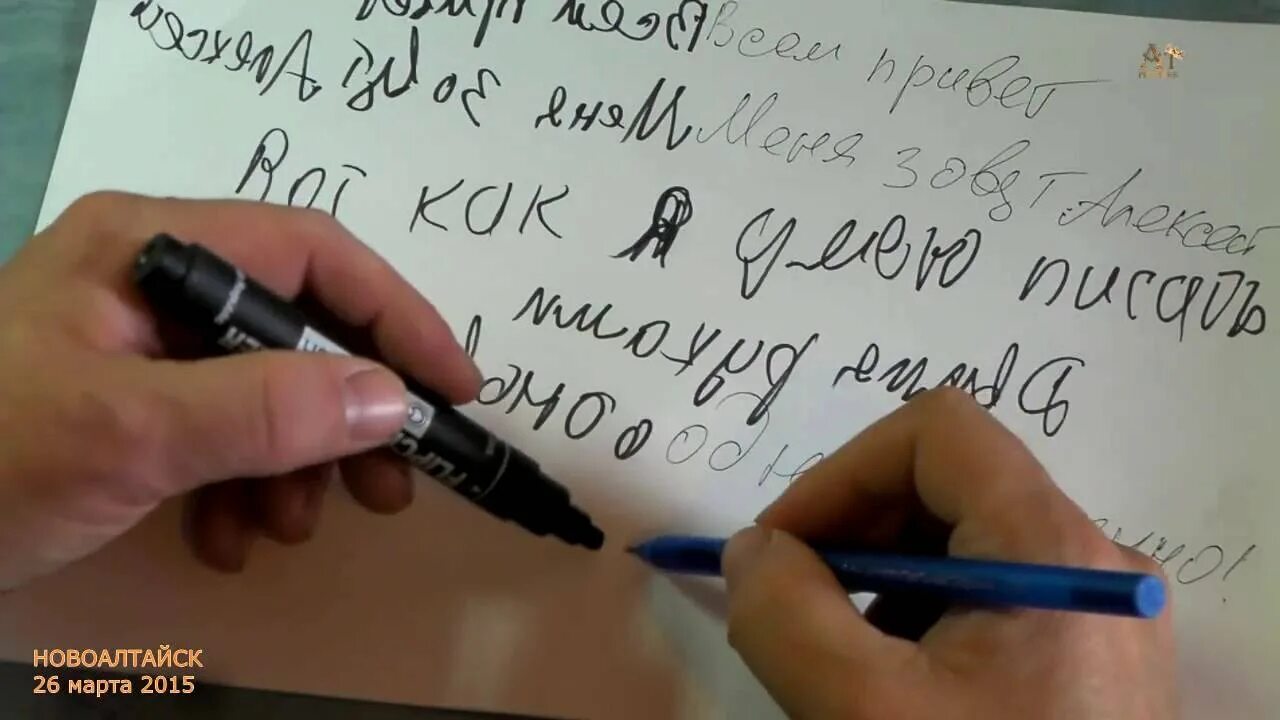 Всем привет Всем привет
Меня зовут Алексей Меня зовут Алексей
Вот как я умею писать
Двумя руками
НОВОАЛТАЙСК
26 марта 2015